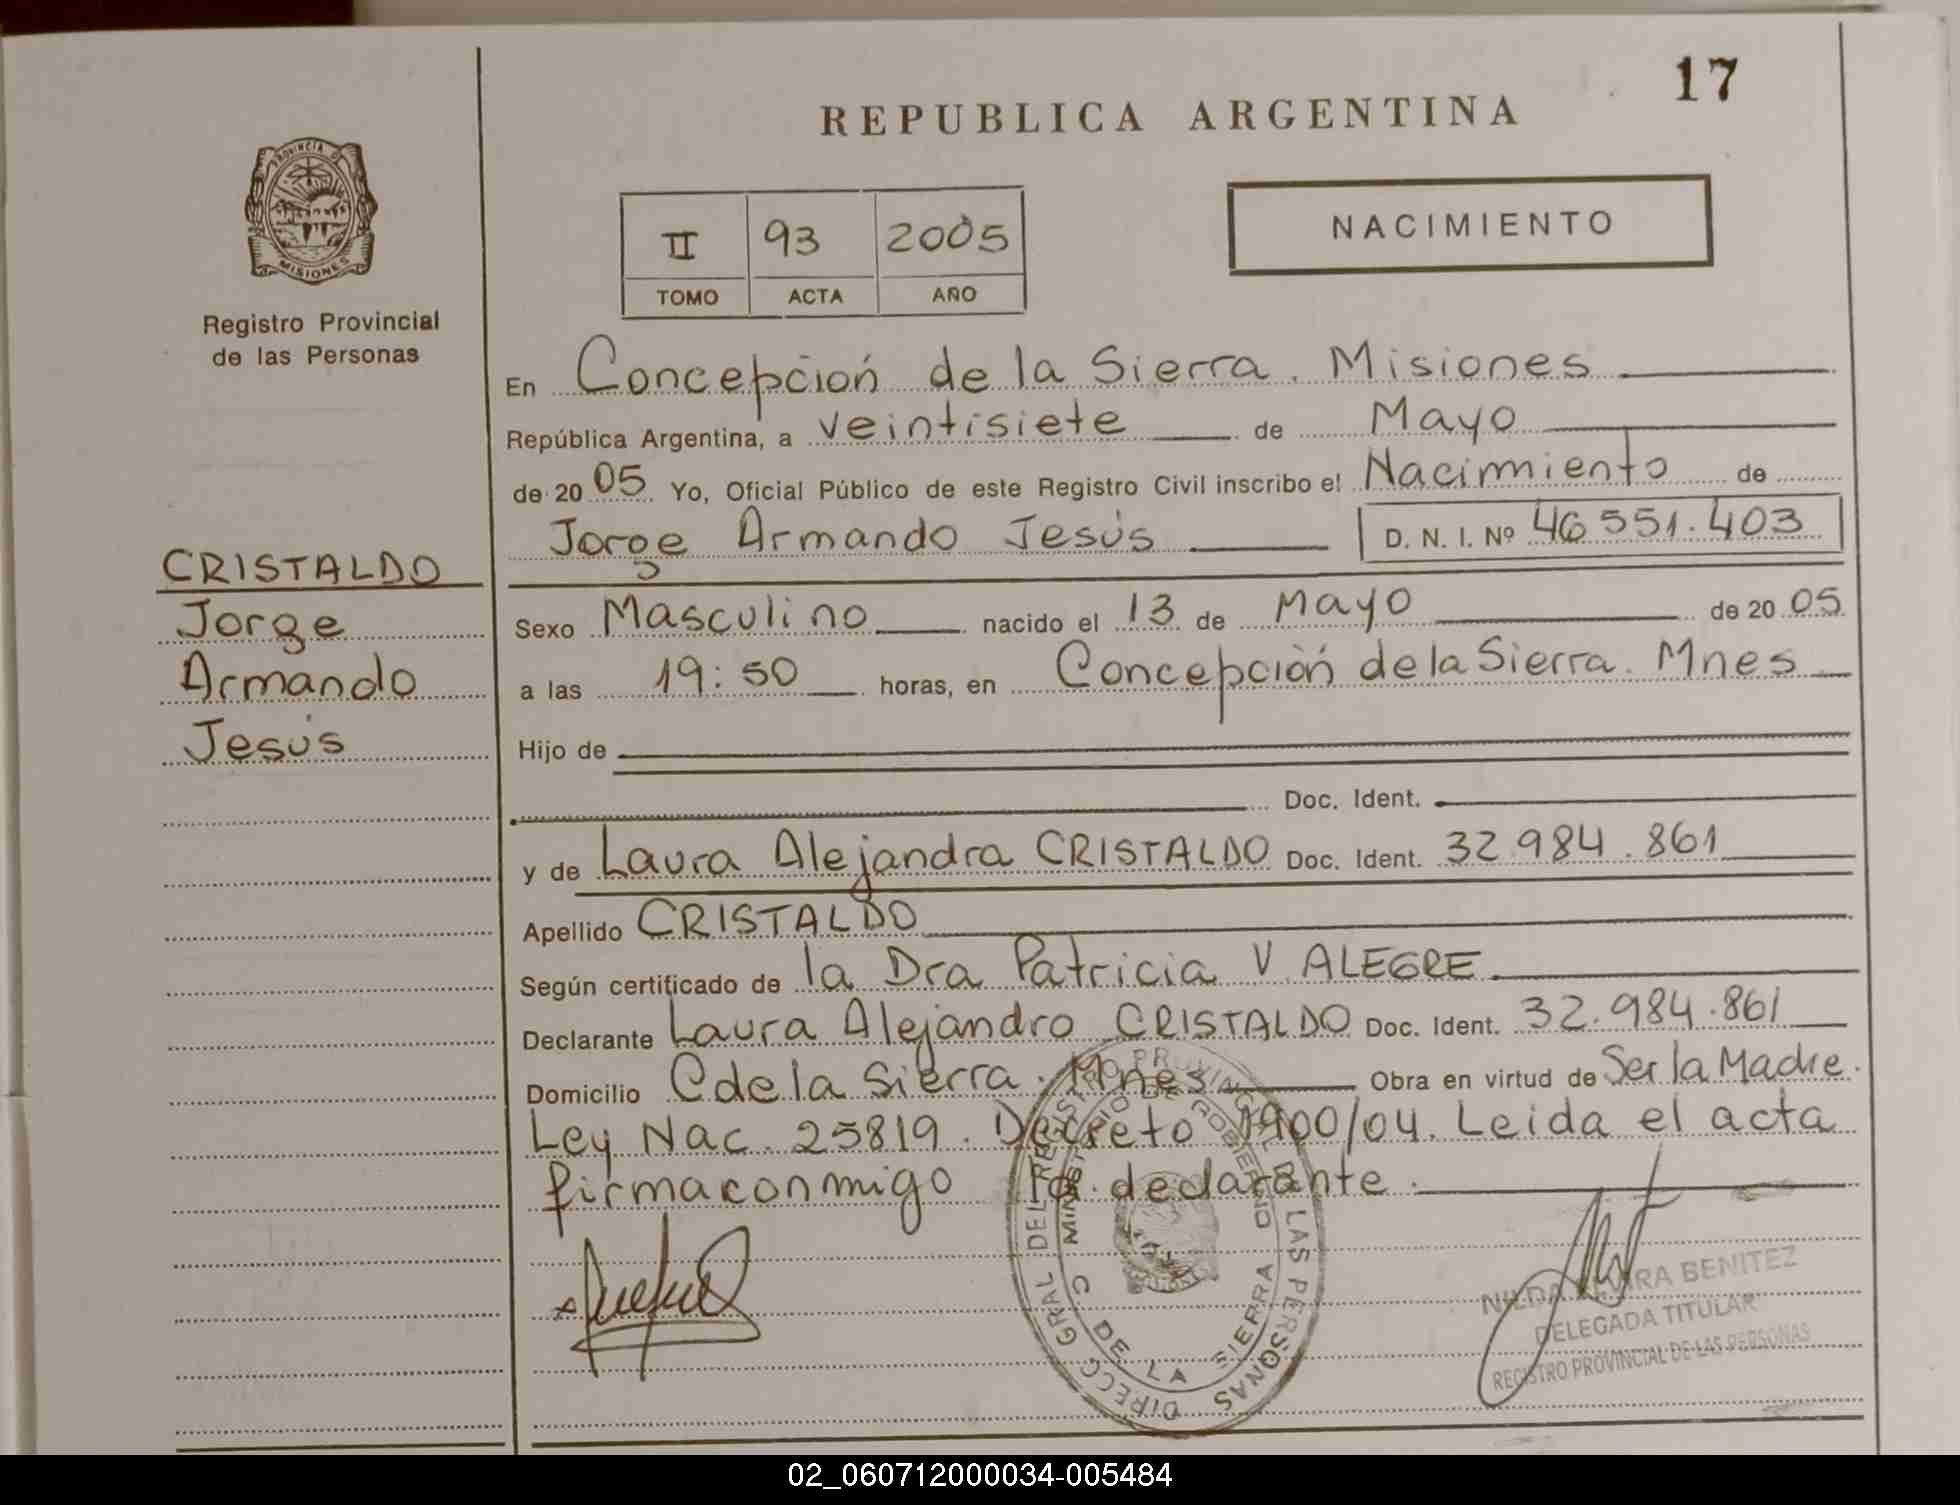 17
REPUBLICA ARGENTINA
PROVINCIA DE
MISIONES
Registro Provincial
de las Personas
II 93 2005
TOMO ACTA AÑO
NACIMIENTO
En Concepción de la Sierra. Misiones
República Argentina, a veintisiete de Mayo
de 2005 Yo, Oficial Público de este Registro Civil inscribo el Nacimiento de
Jorge Armando Jesús D. N. I. Nº 46 551.403
CRISTALDO
Jorge
Armando
Jesús
Sexo Masculino nacido el 13 de Mayo de 2005
a las 19:50 horas, en Concepción de la Sierra. Mnes
Hijo de
Doc. Ident.
y de Laura Alejandra CRISTALDO Doc. Ident. 32.984.861
Apellido CRISTALDO
Según certificado de la Dra Patricia V. ALEGRE
Declarante Laura Alejandro CRISTALDO Doc. Ident. 32.984.861
Domicilio C de la Sierra. Mnes Obra en virtud de Ser la Madre.
Ley Nac. 25819. Decreto 1900/04. Leida el acta
firma conmigo la declarante.
DIRECC GRAL DEL REGISTRO PROVINCIAL DE LAS PERSONAS
MINISTERIO DE GOBIERNO
C DE LA SIERRA
NILDA BENITEZ
DELEGADA TITULAR
REGISTRO PROVINCIAL DE LAS PERSONAS
02_060712000034-005484